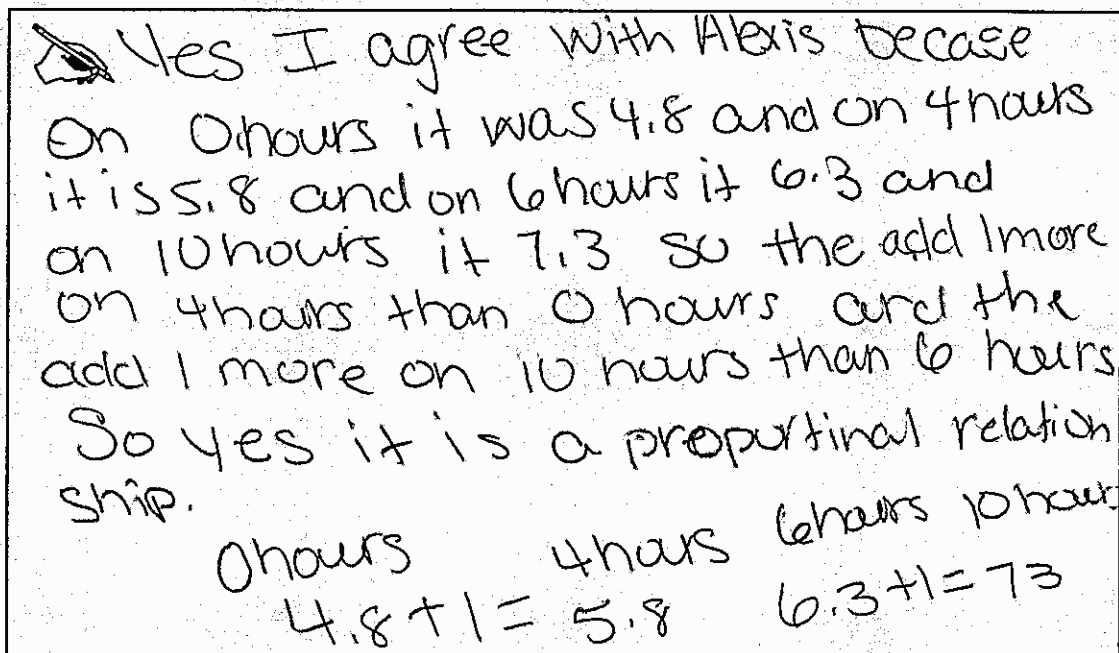 Yes I agree with Alexis becase
on 0 hours it was 4.8 and on 4 hours
it is 5.8 and on 6 hours it 6.3 and
on 10 hours it 7.3 so the add 1 more
on 4 hours than 0 hours and the
add 1 more on 10 hours than 6 hours.
So yes it is a proportinal relation
ship.
0 hours 4 hours 6 hours 10 hours
4.8+1= 5.8 6.3+1=73